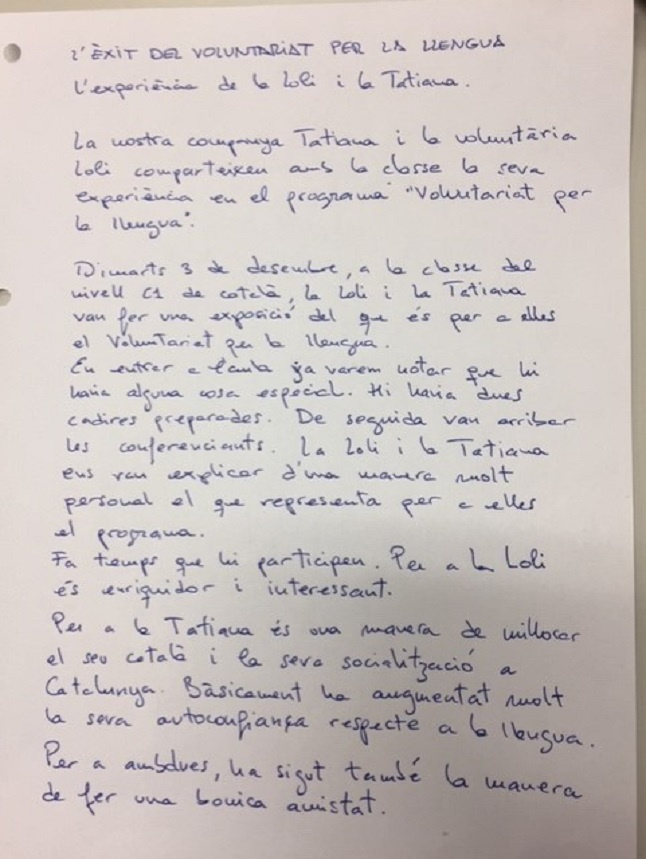 L'ÈXIT DEL VOLUNTARIAT PER LA LLENGUA
L'experiència de la Loli i la Tatiana.
La nostra companya Tatiana i la voluntària
Loli comparteixen amb la classe la seva
experiència en el programa "Voluntariat per
la llengua".
Dimarts 3 de desembre, a la classe del
nivell C1 de català, la Loli i la Tatiana
van fer una exposició del que és per a elles
el Voluntariat per la llengua.
En entrar a l'aula ja varem notar que hi
havia alguna cosa especial. Hi havia dues
cadires preparades. De seguida van arribar
les conferenciants. La Loli i la Tatiana
ens van explicar d'una manera molt
personal el que representa per a elles
el programa.
Fa temps que hi participen. Per a la Loli
és enriquidor i interessant.
Per a la Tatiana és una manera de millorar
el seu català i la seva socialització a
Catalunya. Bàsicament ha augmentat molt
la seva autoconfiança respecte a la llengua.
Per a ambdues, ha sigut també la manera
de fer una bonica amistat.